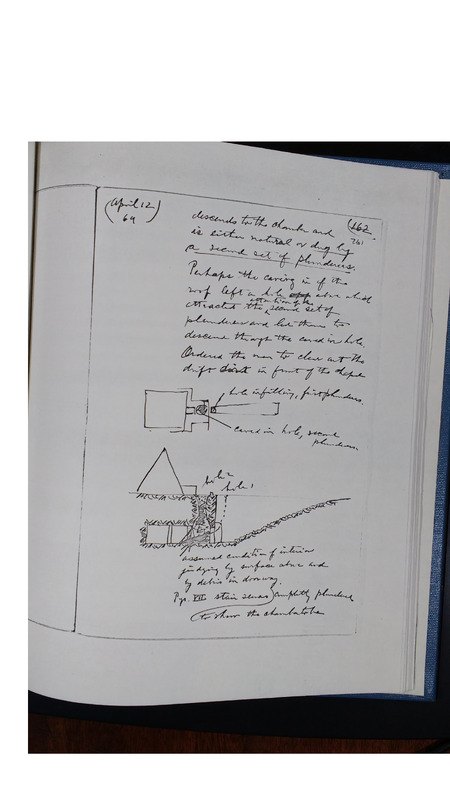 (April 12
64)
162.
761
descends to the chamber and
is either natural or dug by
a second set of plunderers.
Perhaps the caving in of the
roof left a hole above which
attention of the
attracted the second set of
plunderers and led them to
descend through the caved in hole
Ordered the men to clear out the
drift in front of the chapel
hole in filling, first plunderers.
caved in hole, second
plunderers.
hole 2
hole 1
assumed condition of interior
judging by surface above and
by debris in doorway.
Pyr. VII stair completely plundered
to show the chamber to be